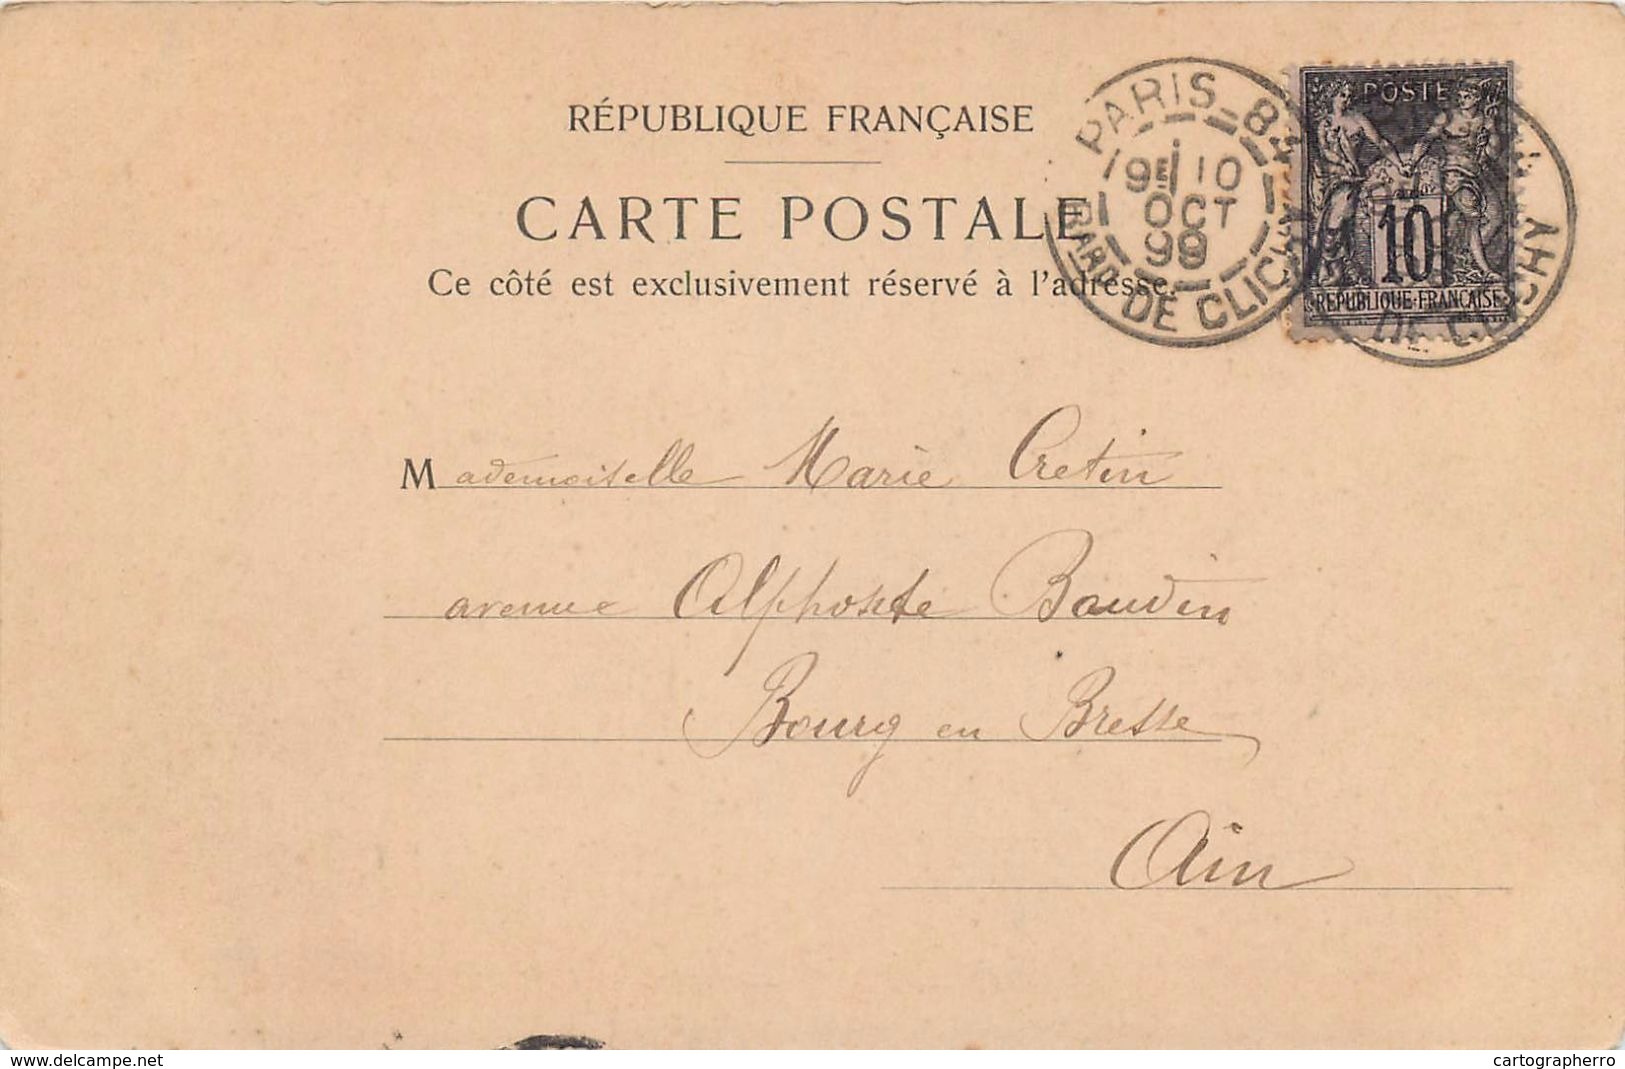 RÉPUBLIQUE FRANÇAISE
CARTE POSTALE
Ce côté est exclusivement réservé à l'adresse.
PARIS_84
19E 10
OCT
99
BARD DE CLICHY
POSTE
10
REPUBLIQUE·FRANÇAISE
DE CLICHY
Mademoiselle Marie Cretin
avenue Alphonse Baudin
Bourg en Bresse
Ain
www.delcampe.net
cartographerro